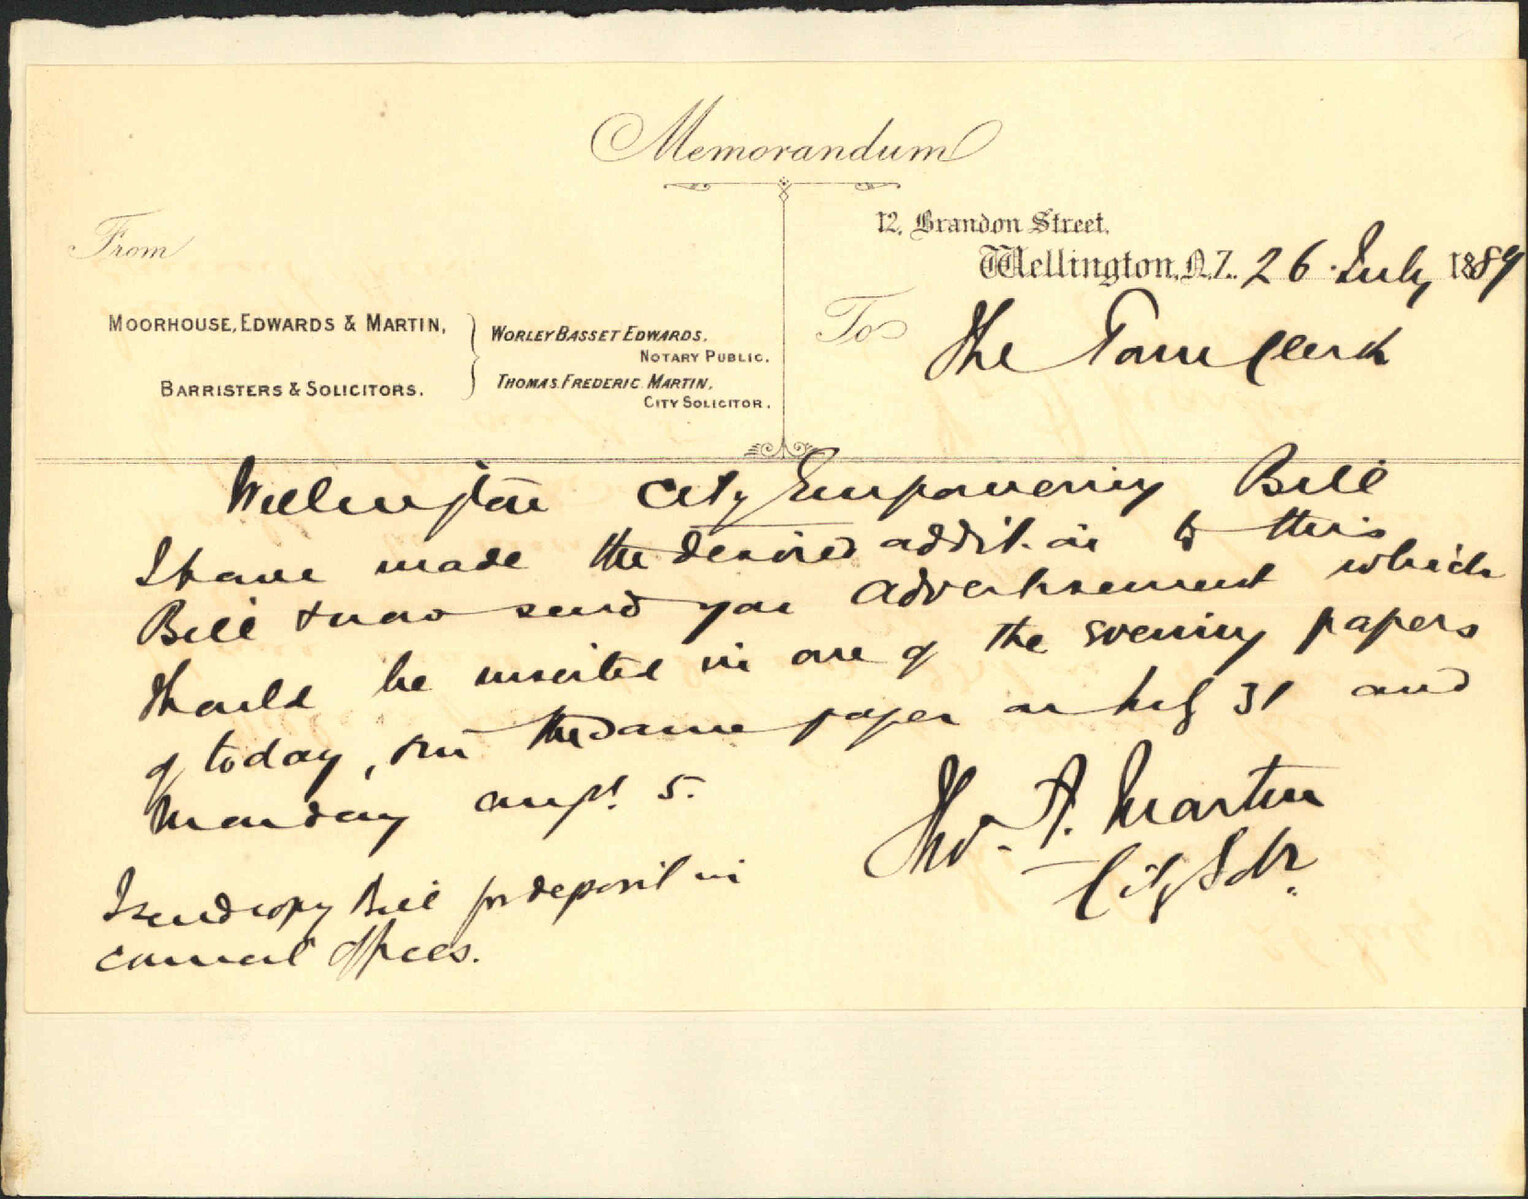 Memorandum
From
12, Brandon Street,
Wellington, N.Z. 26 July 1889
MOORHOUSE, EDWARDS & MARTIN,
BARRISTERS & SOLICITORS.
WORLEY BASSET EDWARDS,
NOTARY PUBLIC.
THOMAS FREDERIC MARTIN,
CITY SOLICITOR.
To
The Town Clerk
Wellington City Empowering Bill
I have made the desired addition to this
Bill & now send you advertisement which
should be inserted in one of the evening papers
of today, & in the same paper on July 31 and
Monday augst. 5.
Tho. F. Martin
City Solr.
I send copy Bill for deposit in
council offices.